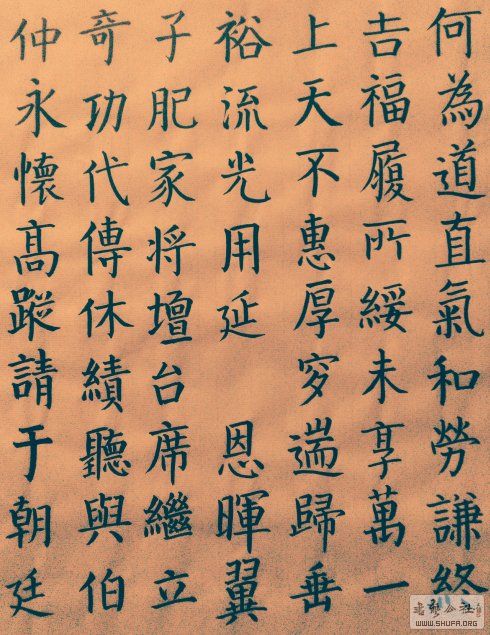 何為道直氣和勞謙終
吉福履所綏未享萬一
上天不惠厚穸遄歸垂
裕流光用延 恩暉翼
子肥家将壇台席繼立
奇功代傳休績聽與伯
仲永懷髙蹤請于朝廷
公社
WWW.SHUFA.ORG